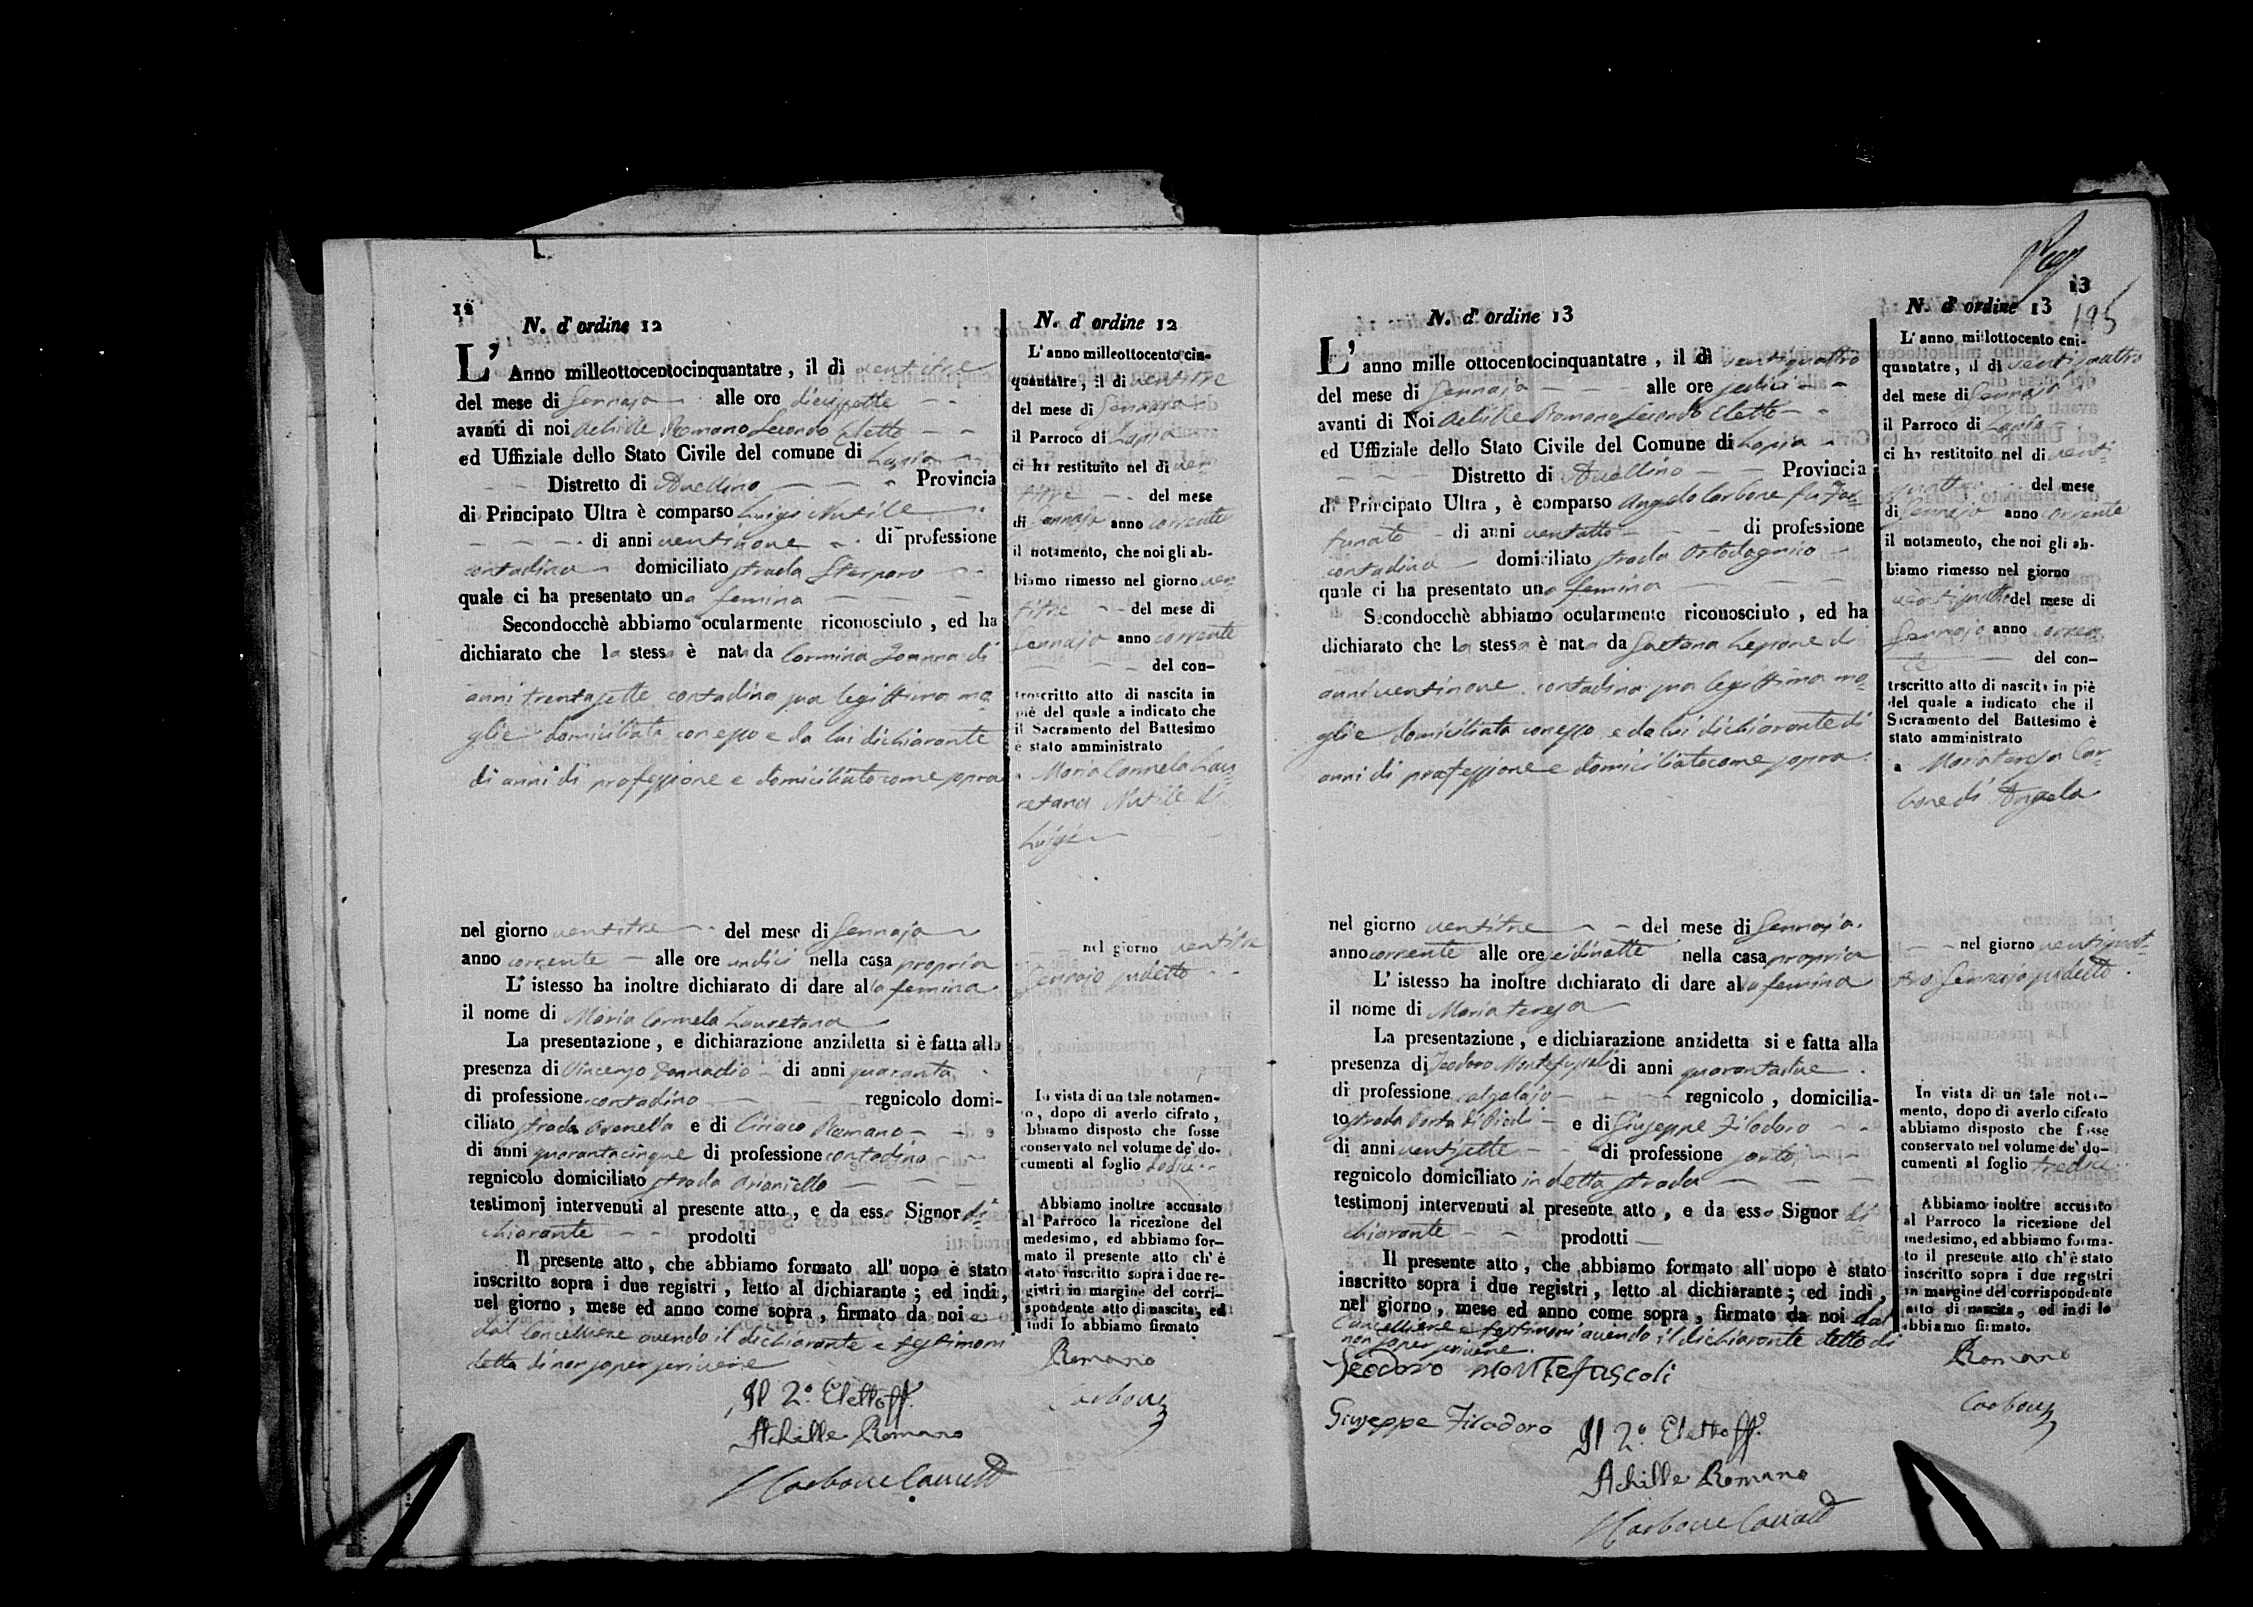 12
N. d' ordine 12
L' Anno milleottocentocinquantatre, il dì ventitre
del mese di Gennajo alle ore diecissette
avanti di noi Achille Romano Secondo Eletto
ed Uffiziale dello Stato Civile del comune di Lapio
Distretto di Avellino Provincia
di Principato Ultra è comparso Luigi Nutile
di anni ventinove di professione
contadino domiciliato strada Sterparo
quale ci ha presentato una femina
Secondocchè abbiamo ocularmente riconosciuto, ed ha
dichiarato che la stessa è nata da Carmina Joanna di
anni trentasette contadina sua legittima mo=
glie domiciliata con esso e da lui dichiarante
di anni di professione e domiciliato come sopra
nel giorno ventitre del mese di Gennajo
anno corrente alle ore undici nella casa propria
L' istesso ha inoltre dichiarato di dare alla femina
il nome di Maria Carmela Lauretana
La presentazione, e dichiarazione anzidetta si è fatta alla
presenza di Vincenzo di anni quaranta
di professione contadino regnicolo domi-
ciliato strada e di Ciriaco Romano
di anni quarantacinque di professione contadino
regnicolo domiciliato strada Arianiello
testimonj intervenuti al presente atto, e da esso Signor di=
chiarante prodotti
Il presente atto, che abbiamo formato all' uopo è stato
inscritto sopra i due registri, letto al dichiarante; ed indi,
nel giorno, mese ed anno come sopra, firmato da noi e
dal Cancelliere avendo il dichiarante e testimoni
detto di non saper scrivere
Il 2.º Eletto ff.
Achille Romano
Carbone Canc
N. d' ordine 12
L' anno milleottocento cin-
quantatre, il di ventitre
del mese di Gennajo
il Parroco di Lapio
ci ha restituito nel di ven
titre del mese
di Gennajo anno corrente
il notamento, che noi gli ab-
biamo rimesso nel giorno ven
titre del mese di
Gennajo anno corrente
del con-
troscritto atto di nascita in
piè del quale a indicato che
il Sacramento del Battesimo
è stato amministrato
a Maria Carmela Lau=
retana Nutile di
Luigi
nel giorno ventitre
Gennajo sudetto
In vista di un tale notamen-
to, dopo di averlo cifrato,
abbiamo disposto che fosse
conservato nel volume de' do-
cumenti al foglio dodici
Abbiamo inoltre accusato
al Parroco la ricezione del
medesimo, ed abbiamo for-
mato il presente atto ch' è
stato inscritto sopra i due re-
gistri in margine del corri-
spondente atto di nascita, ed
indi lo abbiamo firmato
Romano
Carbone
13
195
N. d' ordine 13
L' anno mille ottocentocinquantatre, il dì ventiquattro
del mese di Gennajo alle ore sedici
avanti di Noi Achille Romano Secondo Eletto
ed Uffiziale dello Stato Civile del Comune di Lapio
Distretto di Avellino Provincia
di Principato Ultra, è comparso Angelo Carbone fu For=
tunato di anni ventotto di professione
contadino domiciliato strada
quale ci ha presentato una femina
Secondocchè abbiamo ocularmente riconosciuto, ed ha
dichiarato che la stessa è nata da Gaetana Lepione di
anni ventinove contadina sua legittima mo=
glie domiciliata con esso e da lui dichiarante di
anni di professione e domiciliato come sopra
nel giorno ventitre del mese di Gennajo
anno corrente alle ore nella casa propria
L' istesso ha inoltre dichiarato di dare alla femina
il nome di Maria Teresa
La presentazione, e dichiarazione anzidetta si e fatta alla
presenza di Teodoro Montefuscoli di anni quarantadue
di professione calzolajo regnicolo, domicilia-
to strada Porta e di Giuseppe Filodoro
di anni ventisette di professione sarto
regnicolo domiciliato in detta strada
testimonj intervenuti al presente atto, e da esso Signor di
chiarante prodotti
Il presente atto, che abbiamo formato all' uopo è stato
inscritto sopra i due registri, letto al dichiarante; ed indi,
nel giorno, mese ed anno come sopra, firmato da noi dal
Cancelliere e testimoni avendo il dichiarante detto di
non saper scrivere.
Teodoro Montefuscoli
Giuseppe Filodoro
Il 2.º Eletto ff.
Achille Romano
Carbone Canc
N. d' ordine 13
L' anno millottocento cni-
quantatre, il di ventiquattro
del mese di Gennajo
il Parroco di Lapio
ci ha restituito nel di venti
quattro del mese
di Gennajo anno corrente
il notamento, che noi gli ab-
biamo rimesso nel giorno
ventiquattro del mese di
Gennajo anno corren
te del con-
trscritto atto di nascita in piè
del quale a indicato che il
Sacramento del Battesimo è
stato amministrato
a Maria Teresa Car=
bone di Angelo
nel giorno ventiquat=
tro Gennajo sudetto.
In vista di un tale nota-
mento, dopo di averlo cifrato
abbiamo disposto che fosse
conservato nel volume de' do-
cumenti al foglio tredici
Abbiamo inoltre accusato
al Parroco la ricezione del
medesimo, ed abbiamo forma-
to il presente atto ch' è stato
inscritto sopra i due registri
in margine del corrispondente
atto di nascita, ed indi lo
abbiamo firmato.
Romano
Carbone